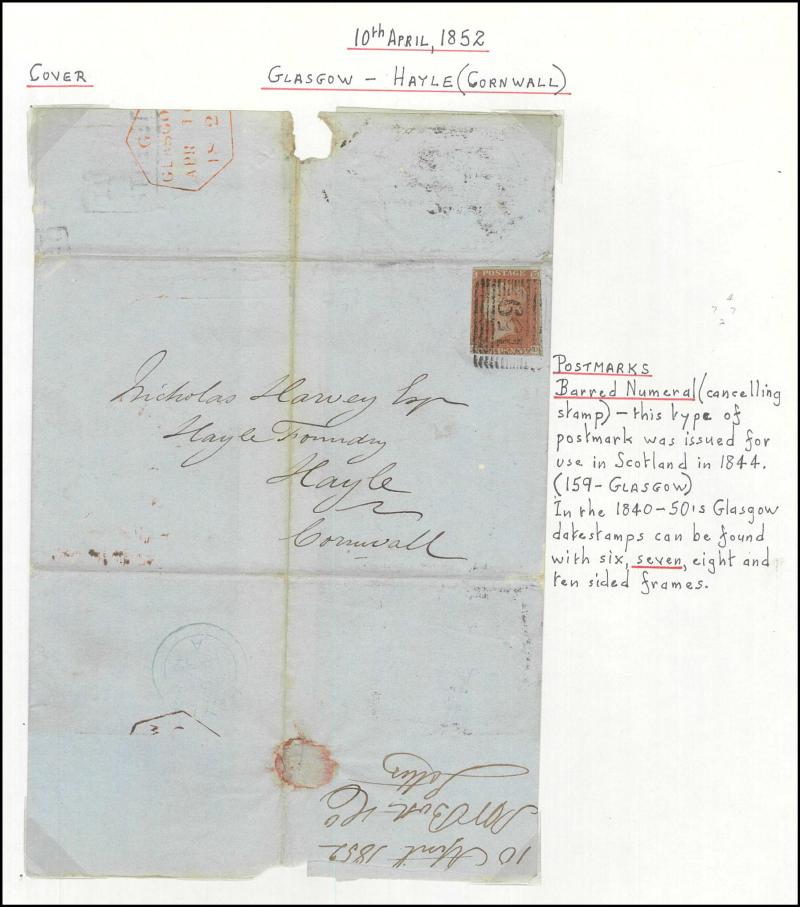 10th April, 1852
Cover
Glasgow – Hayle (Cornwall)
G
GLASGO
APR 1
18 2
POSTAGE
159
Nicholas Harvey Esqr
Hayle Foundry
Hayle
Cornwall
Postmarks
Barred Numeral (cancelling
stamp) – this type of
postmark was issued for
use in Scotland in 1844.
(159 – Glasgow)
In the 1840–50's Glasgow
datestamps can be found
with six, seven, eight and
ten sided frames.
A
10 April 1852
& Co
Letter